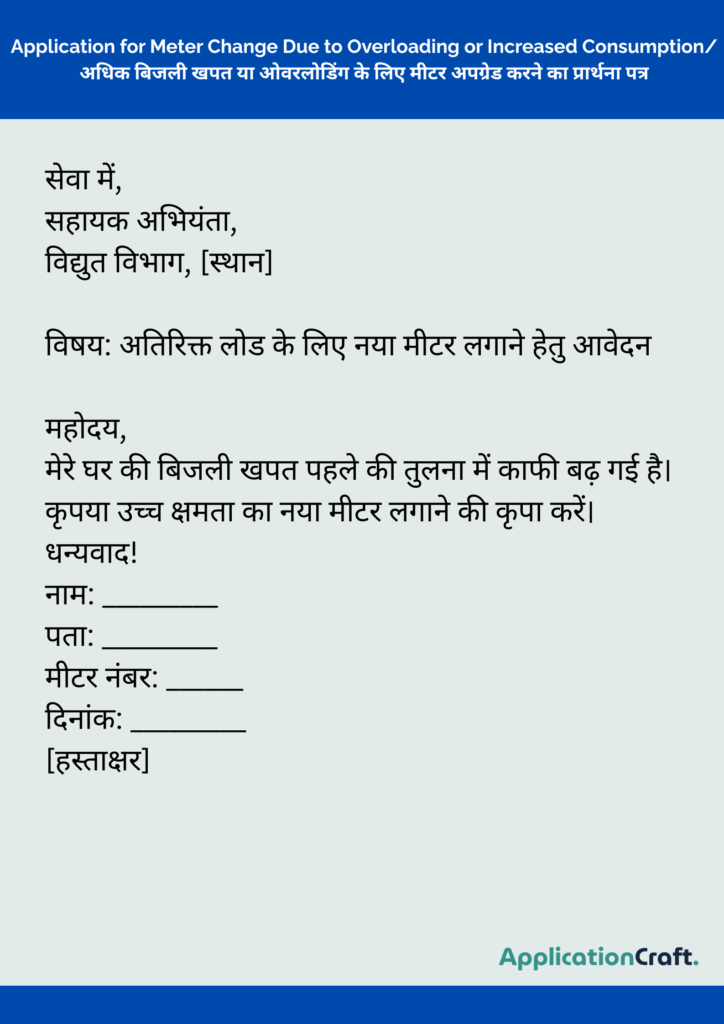 Application for Meter Change Due to Overloading or Increased Consumption/
अधिक बिजली खपत या ओवरलोडिंग के लिए मीटर अपग्रेड करने का प्रार्थना पत्र
सेवा में,
सहायक अभियंता,
विद्युत विभाग, [स्थान]
विषय: अतिरिक्त लोड के लिए नया मीटर लगाने हेतु आवेदन
महोदय,
मेरे घर की बिजली खपत पहले की तुलना में काफी बढ़ गई है।
कृपया उच्च क्षमता का नया मीटर लगाने की कृपा करें।
धन्यवाद!
नाम: _________
पता: _________
मीटर नंबर: ______
दिनांक: _________
[हस्ताक्षर]
ApplicationCraft.